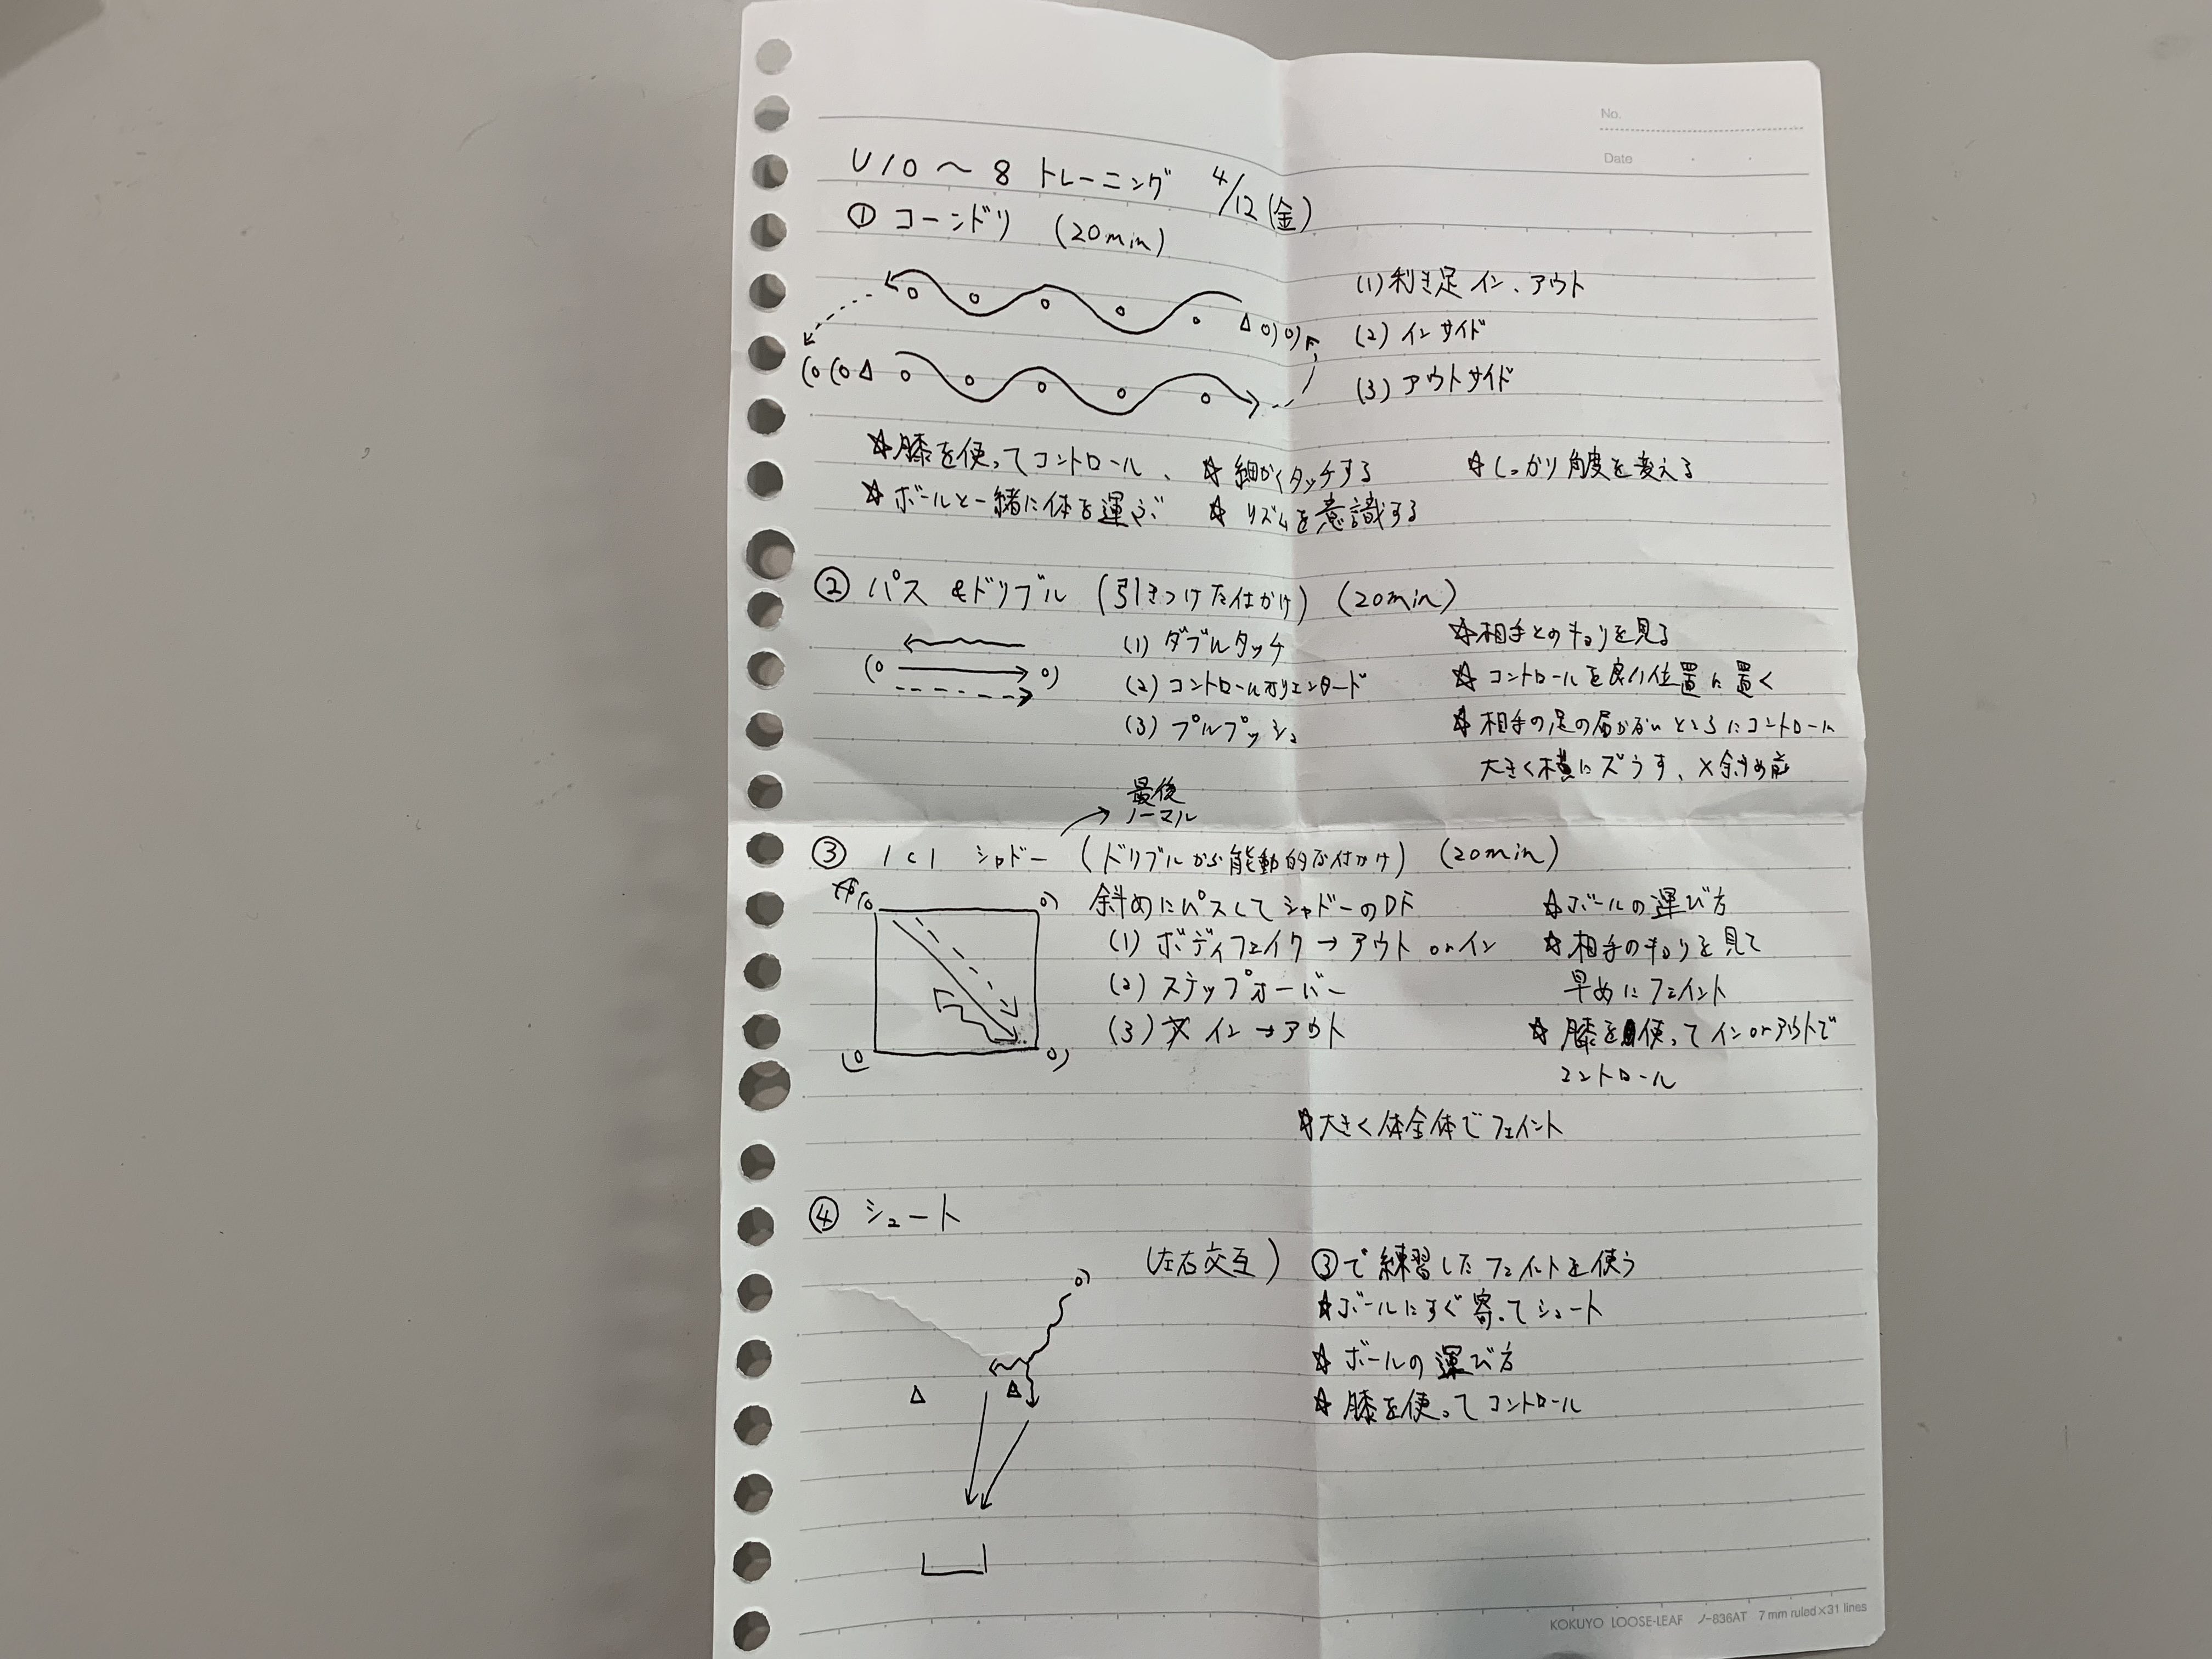 No.
Date
U10〜8 トレーニング 4/12(金)
① コーンドリ (20min)
(1) 利き足 イン、アウト
(2) インサイド
(3) アウトサイド
☆膝を使ってコントロール、 ☆細かくタッチする ☆しっかり角度を変える
☆ボールと一緒に体を運ぶ ☆リズムを意識する
② パス &ドリブル (引きつけた仕かけ) (20min)
(1) ダブルタッチ
(2) コントロールオリエンタード
(3) プルプッシュ
☆相手とのキョリを見る
☆コントロールを良い位置に置く
☆相手の足の届かないところにコントロール
大きく横にズラす、×斜め前
最後
ノーマル
③ 1c1 シャドー (ドリブルから能動的な仕かけ) (20min)
斜めにパスしてシャドーのDF
(1) ボディフェイク→アウト or イン
(2) ステップオーバー
(3) イン→アウト
☆ボールの運び方
☆相手のキョリを見て
早めにフェイント
☆膝を使ってインorアウトで
コントロール
☆大きく体全体でフェイント
④ シュート
(左右交互) ③で練習したフェイントを使う
☆ボールにすぐ寄ってシュート
☆ボールの運び方
☆膝を使ってコントロール
KOKUYO LOOSE-LEAF ノ-836AT 7mm ruled×31 lines